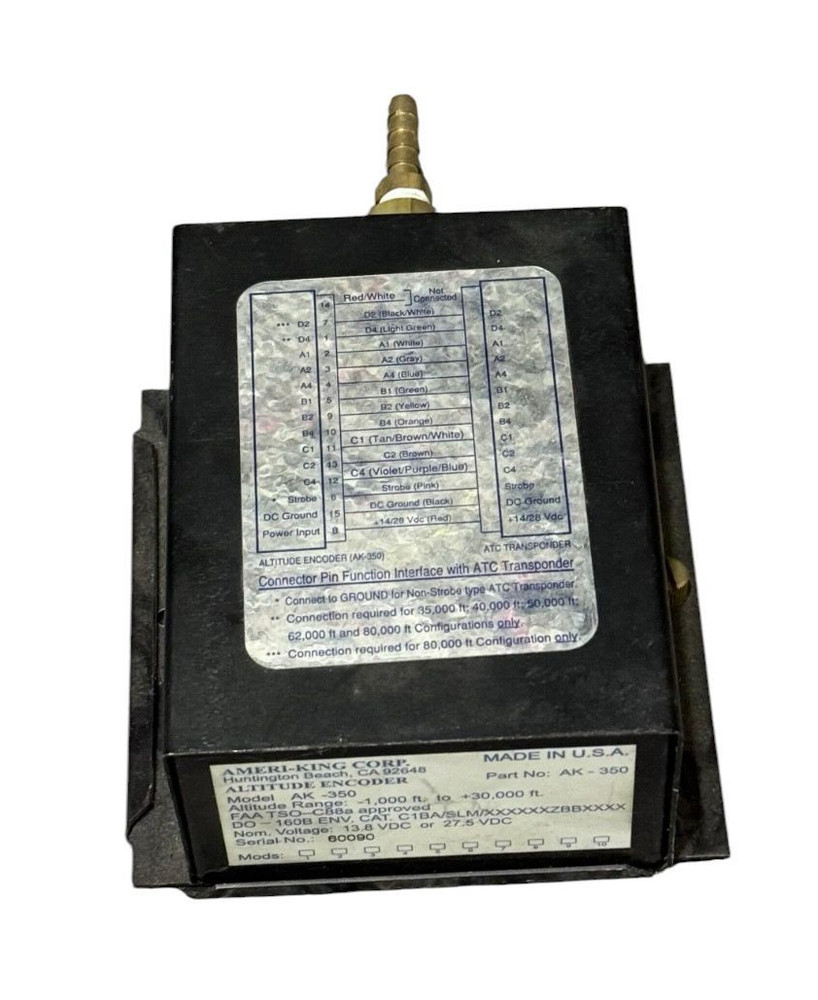 14 Red/White Not Connected
*** D2 7 D2 (Black/White) D2
** D4 1 D4 (Light Green) D4
A1 2 A1 (White) A1
A2 3 A2 (Gray) A2
A4 4 A4 (Blue) A4
B1 5 B1 (Green) B1
B2 9 B2 (Yellow) B2
B4 10 B4 (Orange) B4
C1 11 C1 (Tan/Brown/White) C1
C2 13 C2 (Brown) C2
C4 12 C4 (Violet/Purple/Blue) C4
* Strobe 6 Strobe (Pink) Strobe
DC Ground 15 DC Ground (Black) DC Ground
Power Input 8 +14/28 Vdc (Red) +14/28 Vdc
ALTITUDE ENCODER (AK-350) ATC TRANSPONDER
Connector Pin Function Interface with ATC Transponder
* Connect to GROUND for Non-Strobe type ATC Transponder.
** Connection required for 35,000 ft; 40,000 ft; 50,000 ft;
62,000 ft and 80,000 ft Configurations only.
*** Connection required for 80,000 ft Configuration only.
AMERI-KING CORP. MADE IN U.S.A.
Huntington Beach, CA 92648 Part No: AK - 350
ALTITUDE ENCODER
Model AK -350
Altitude Range: -1,000 ft. to +30,000 ft.
FAA TSO-C88a approved
DO - 160B ENV. CAT. C1BA/SLM/XXXXXXZBBXXXX
Nom. Voltage: 13.8 VDC or 27.5 VDC
Serial No.: 60090
Mods: 1 2 3 4 5 6 7 8 9 10